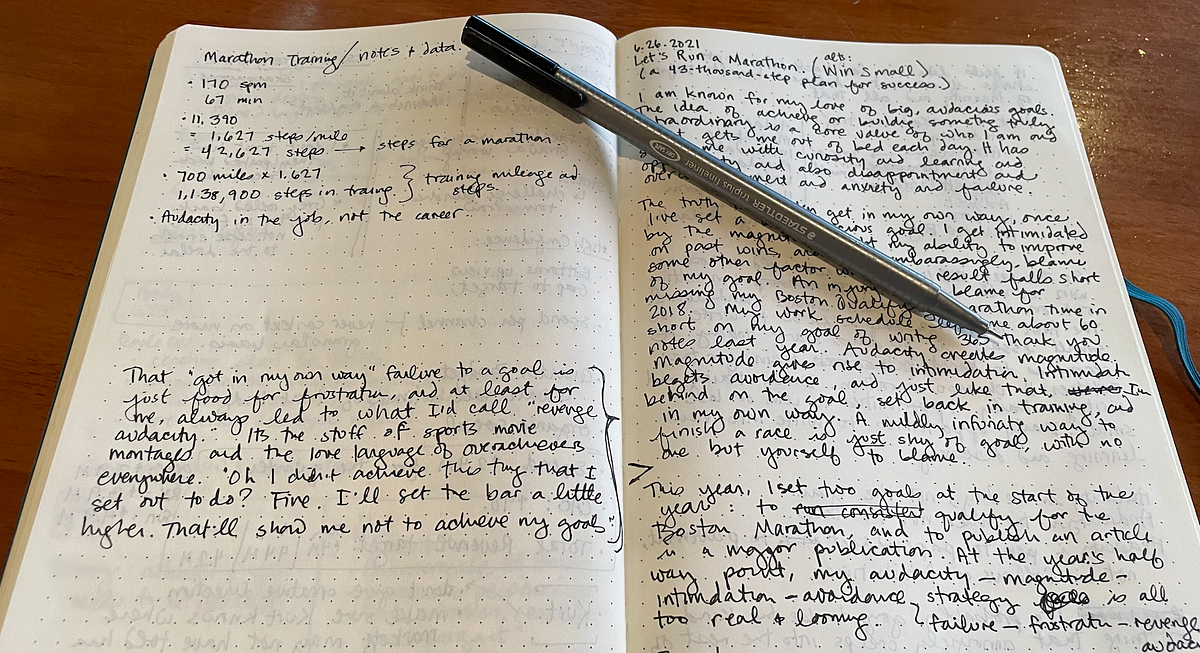 Marathon Training / notes + data.
• 170 spm
67 min
• 11,390
= 1,627 steps/mile
= 42,627 steps → steps for a marathon.
• 700 miles x 1.627
1,138,900 steps in traing. } training mileage and steps.
• Audacity in the job, not the career.
That "got in my own way" failure to a goal is
just food for frustratn, and at least for
me, always led to what I'd call "revenge
audacity." Its the stuff of sports movie
montages and the love language of overachievers
everywhere. "Oh I didn't achieve this thing that I
set out to do? Fine. I'll set the bar a little
higher. That'll show me not to achieve my goals"
6.26.2021
Let's Run a Marathon. (alts: Win Small)
(a 43-thousand-step plan for success.)
I am known for my love of big, audacious goals.
The idea of achieve or building something truly
traordinary is a core value of who I am and
gets me out of bed each day. It has
me with curiosity and learning and
and also disappointment and
and anxiety and failure.
The truth get in my own way, once
I've set a goal. I get intimidated
by the my ability to improve
on past wins, and embarassingly, blame
some other factor result falls short
of my goal. An blame for
missing my Boston Qualify marathon time in
2018. My work schedule me about 60
short on my goal of writing 365 Thank you
notes last year. Audacity creates magnitude.
Magnitude gives rise to intimidation. Intimidatn
begets avoidence, and just like that, I'm
behind on the goal, set back in training, and
in my own way. A mildly infuriate way to
finish a race is just shy of goal with no
one but yourself to blame.
This year, I set two goals at the start of the
year: to run consistent qualify for the
Boston Marathon, and to publish an article
in a maggor publication. At the year's half
way point, my audacity - magnitude -
intimidation - avoidance strategy is all
too real & looming. failure - frustratn - revenge
audac
STAEDTLER triplus fineliner